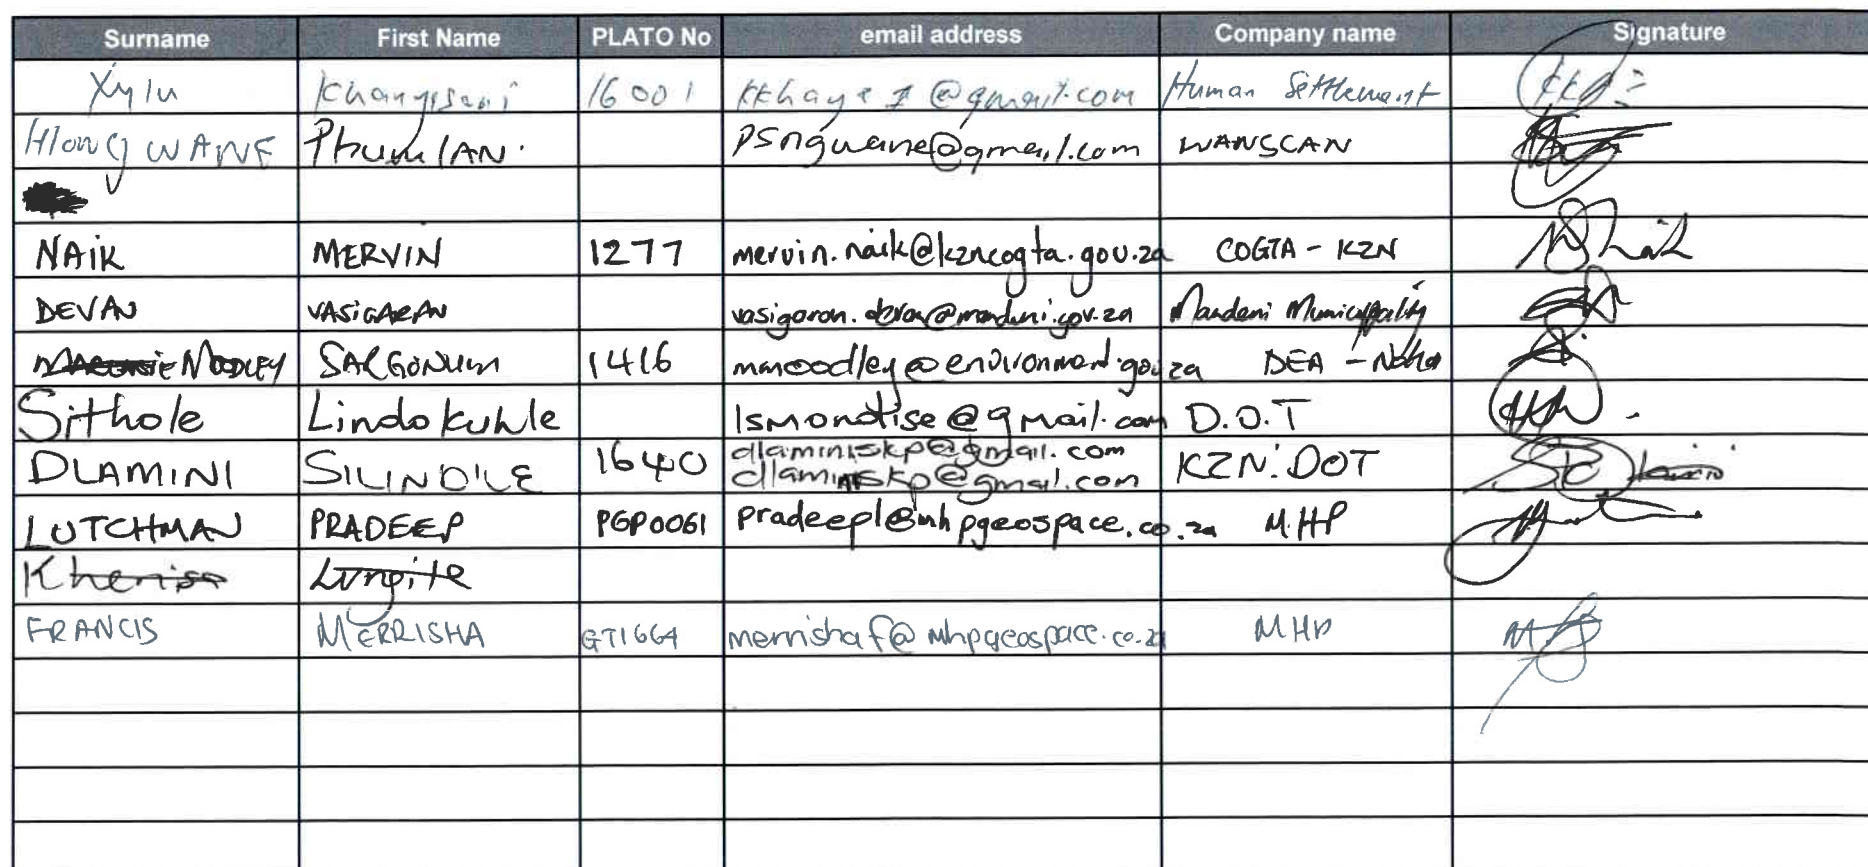 Surname First Name PLATO No email address Company name Signature
Xylu 16001 @gmail.com Human Settlement
Hlongwane PhumlAN. psnguane@gmail.com WANSCAN
NAIK MERVIN 1277 mervin.naik@kzncogta.gov.za COGTA - KZN
DEVAN VASIGARAN Mandeni Municipality
MOODLEY SALGONUM 1416 DEA
Sithole Lindokuhle lsmondise@gmail.com D.O.T
DLAMINI SILINDILE 1640 dlaminiskp@gmail.com KZN. DOT
dlaminiskp@gmail.com
LUTCHMAN PRADEEP PGP0061 pradeepl@mhpgeospace.co.za MHP
FRANCIS MERRISHA GTI664 merrishaf@mhpgeospace.co.za MHP